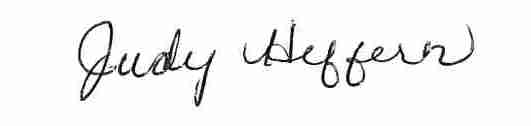 Judy Heffern